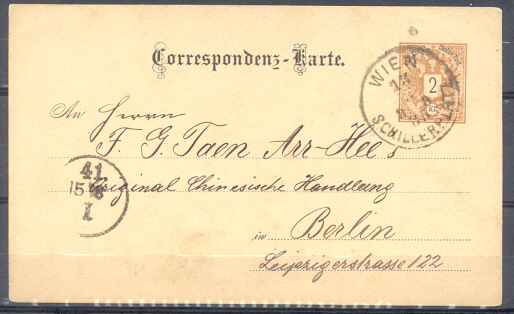 Correspondenz-Karte.
WIEN
SCHILLERPLATZ
2
KR
An Herrn
F. G. Taen Arr-Hee's
Original Chinesische Handlung
in Berlin
Leipzigerstrasse 122
41
15
I